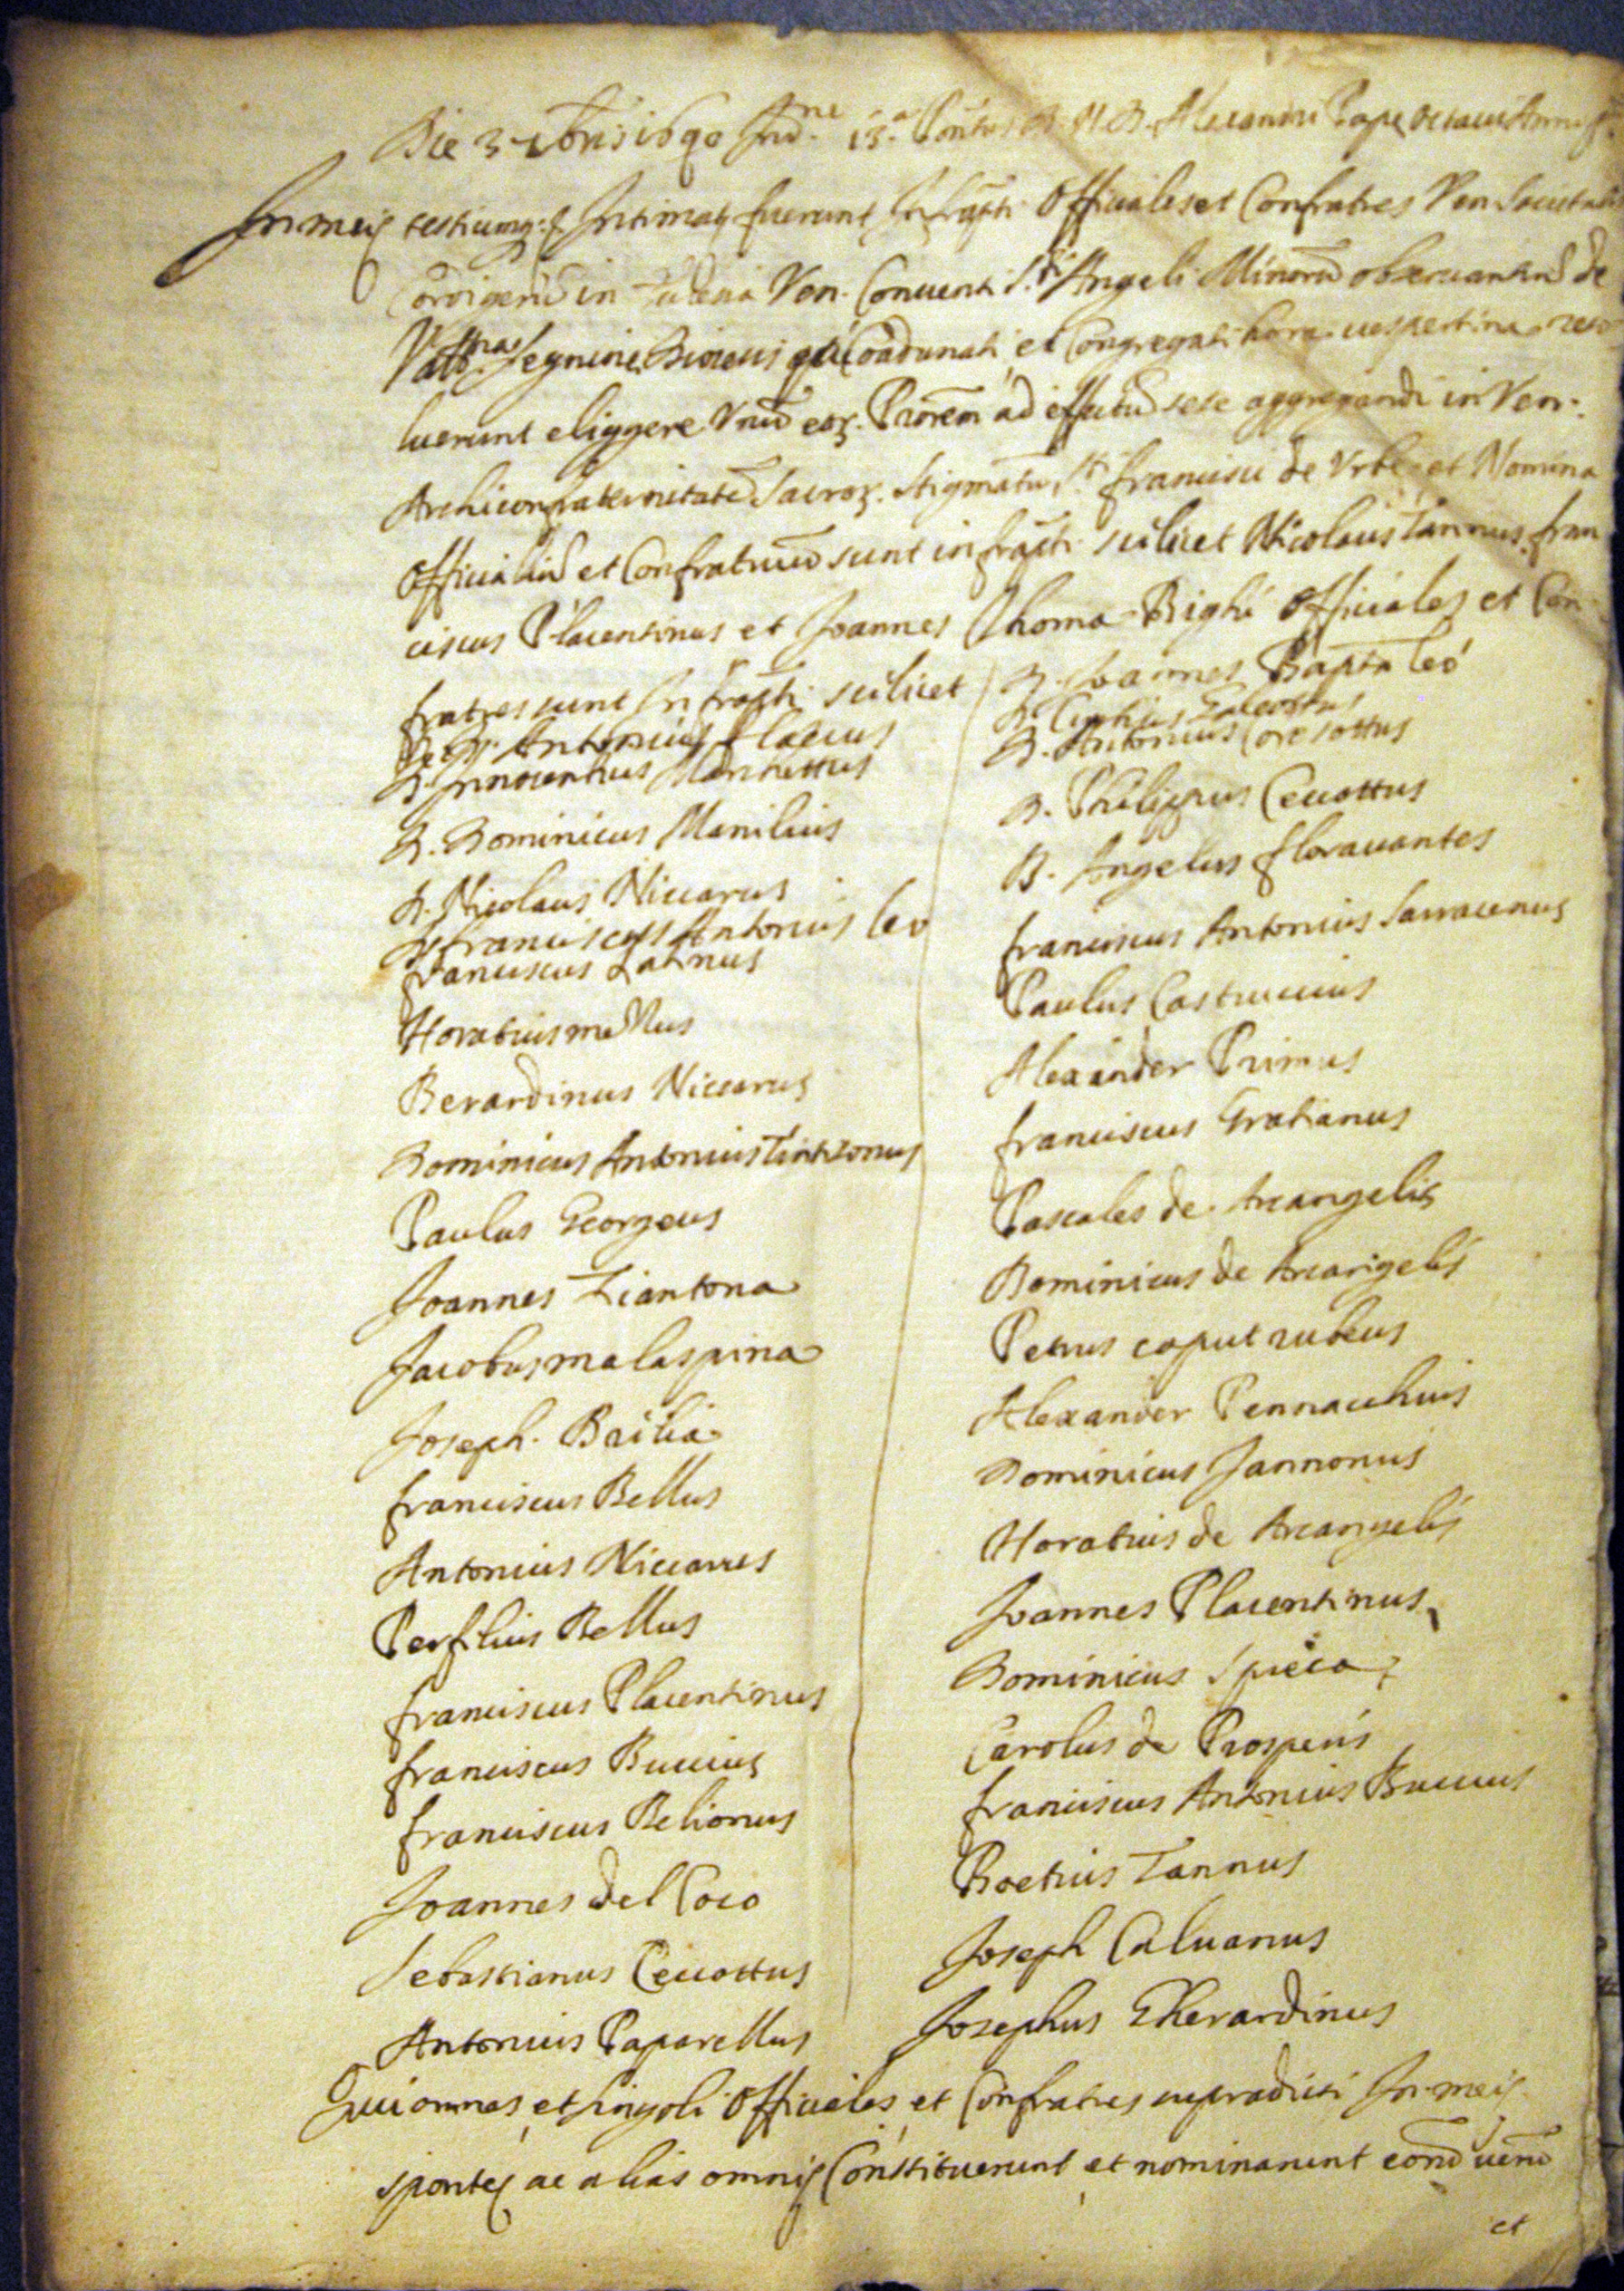 Die 3 7bris 1690 Ind.ne 13.a Pontus D. N. D. Alexandri Pape octaui Anno
In meis testiumq; & Intimati fuerunt Infratti Officiales et Confratres Ven Societatis
Cordigerū in Ven. Conuenti S.ti Angeli Minorū obseruantiū de
Vallo Segnine Diocesis qui Coadunati et Congregati hora uespertina reso
luerunt eliggere Vnū eoȝ. Prorem ad effectū sese aggregandi in Ven:
Archiconfraternitatē Sacroȝ. Stigmatū S.ti Francisci de Vrbe et Nomina
Officialiū et Confratruū sunt infratti scilicet Nicolaus Tannus. fran
ciscus Placentinus et Joannes Thoma Righi Officiales et Con
fratres sunt Infratti scilicet
D. Antonius Flaccus
D. Innocentius Marchettus
D. Dominicus Manilius
D. Nicolaus Niccarus
D. Franciscus Antonius leo
Franciscus Latinus
Horatius mellus
Berardinus Niccarus
Dominicus Antonius
Paulus Georgeus
Joannes Ziantona
Jacobus malaspina
Joseph. Bailia
franciscus Bellus
Antonius Niccarus
Perfilius Bellus
franciscus Placentinus
franciscus Buccius
franciscus Belionus
Joannes del Coco
Sebastianus Ceccottus
Antonius Paparellus
D. Joannes Bapta leo
D. Galeottus
D. Antonius Coresottus
D. Philippus Ceccottus
D. Angelus florauantes
franciscus Antonius Sarracenus
Paulus Castruccius
Alexander Primus
franciscus Gratianus
Pascales de Arcangelis
Dominicus de Arcangelis
Petrus caput rubeus
Alexander Pennacchius
Dominicus Jannonus
Horatius de Arcangelis
Joannes Placentinus
Dominicus Spica
Carolus de Prosperis
franciscus Antonius Buccius
Boetius Tannus
Joseph Caluanus
Josephus Gherardinus
Qui omnes et singoli Officiales et Confratres supradicti In meis
spontes ac alias omnis Constituerunt et nominarunt eorū uerū
et